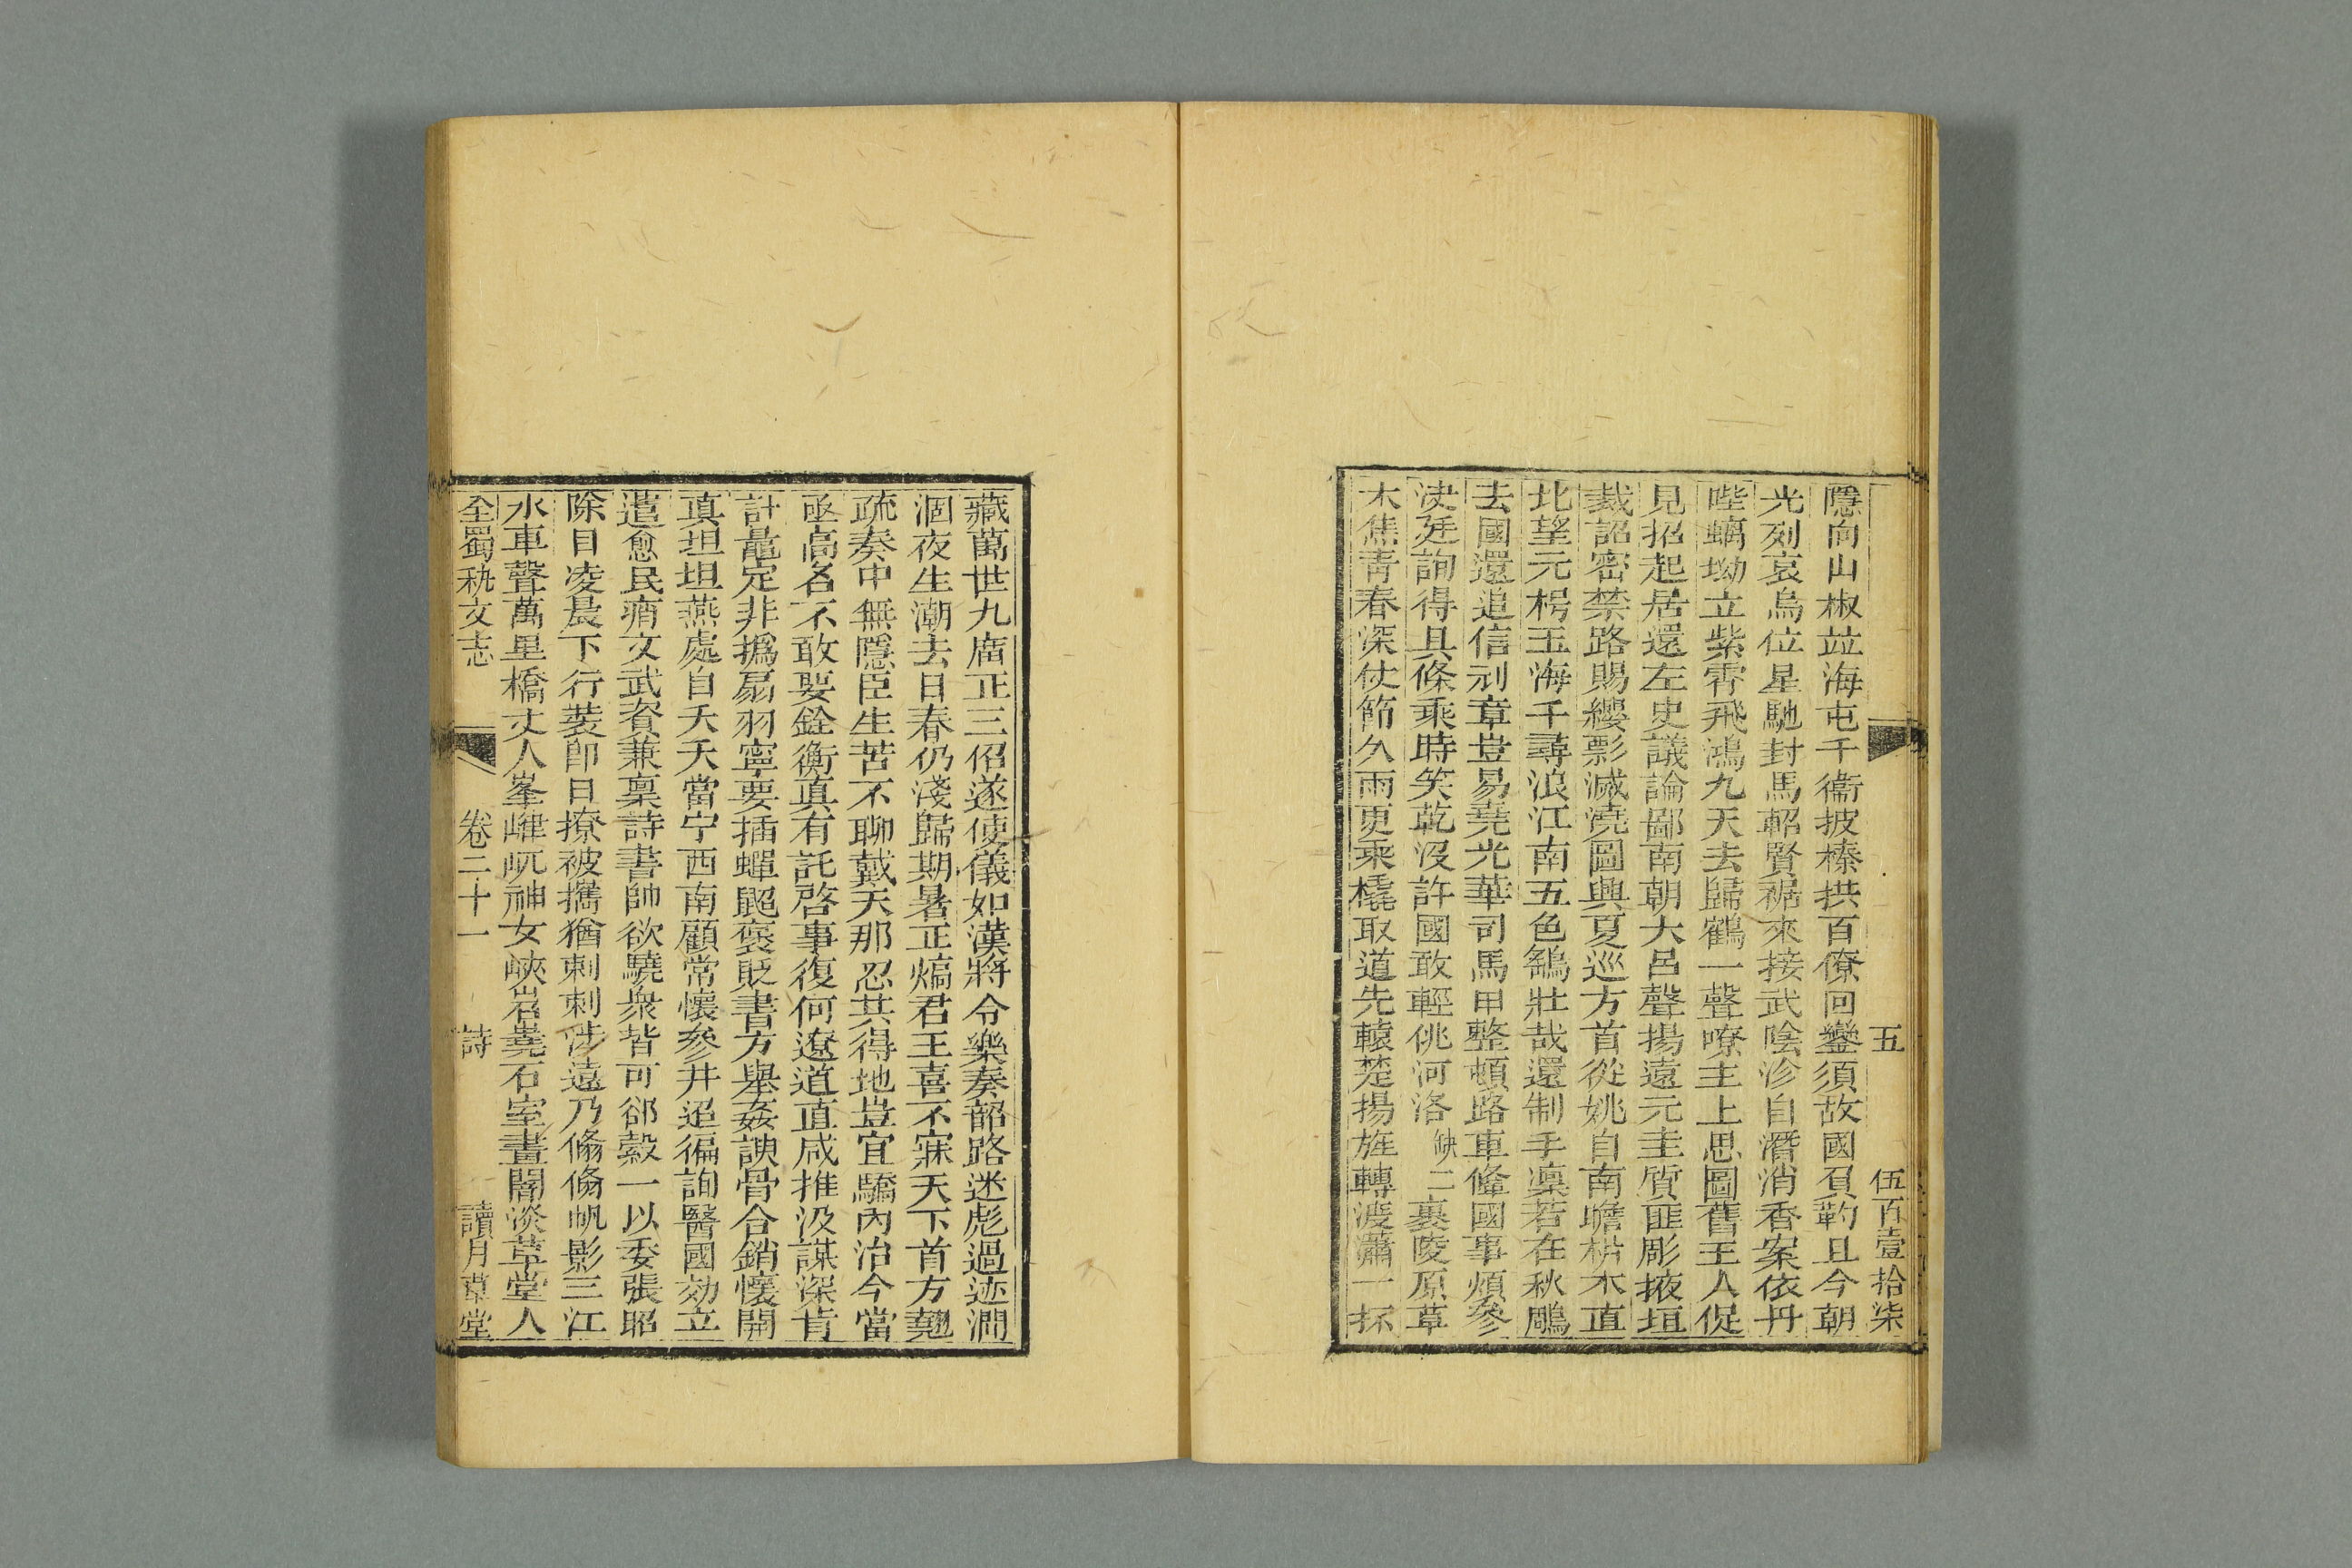 五　伍百壹拾柒
隱向山椒並海屯千衞披榛拱百僚回鑾須故國負勒且今朝
光列哀烏位星馳封馬軺賢裾來接武陰沴自潛消香案依丹
陛螭坳立紫霄飛鴻九天去歸鶴一聲嘹主上思圖舊王人促
見招起居還左史議論鄙南朝大呂聲揚遠元圭質匪彫掖垣
裁詔密禁路賜纓影滅澆圖與夏巡方首從姚自南瞻枯木直
北望元枵玉海千尋浪江南五色鷂壯哉還制手凜若在秋鵰
去國還追信剡章豈易堯光華司馬甲整頓路車鞗國事煩參
決廷詢得具條乘時笑乾沒許國敢輕佻河洛缺二裹陵原草
木焦青春深仗節久雨更乘橇取道先轅楚揚旌轉渡瀟一抔
藏萬世九廟正三佋遂使儀如漢將令樂奏韶路迷彪過迹澗
涸夜生潮去日春仍淺歸期暑正熇君王喜不寐天下首方翹
疏奏中無隱臣生苦不聊戴天那忍其得地豈宜驕內治今當
亟高名不敢娶銓衡真有託啓事復何遼道直咸推汲謀深肯
計鼂定非撝扇羽寧要插蟬貂褒貶書方舉姦諛骨合銷懷開
真坦坦燕處自夭夭當宁西南顧常懷參井迢徧詢醫國効立
遣愈民痟文武資兼稟詩書帥欲驍衆皆可郤縠一以委張昭
除目凌晨下行裝卽日撩被攜猶刺刺涉遠乃翛翛帆影三江
水車聲萬里橋丈人峯嵂屼神女峽岧嶤石室畫闇淡草堂人
全蜀秇文志　卷二十一　詩　讀月草堂